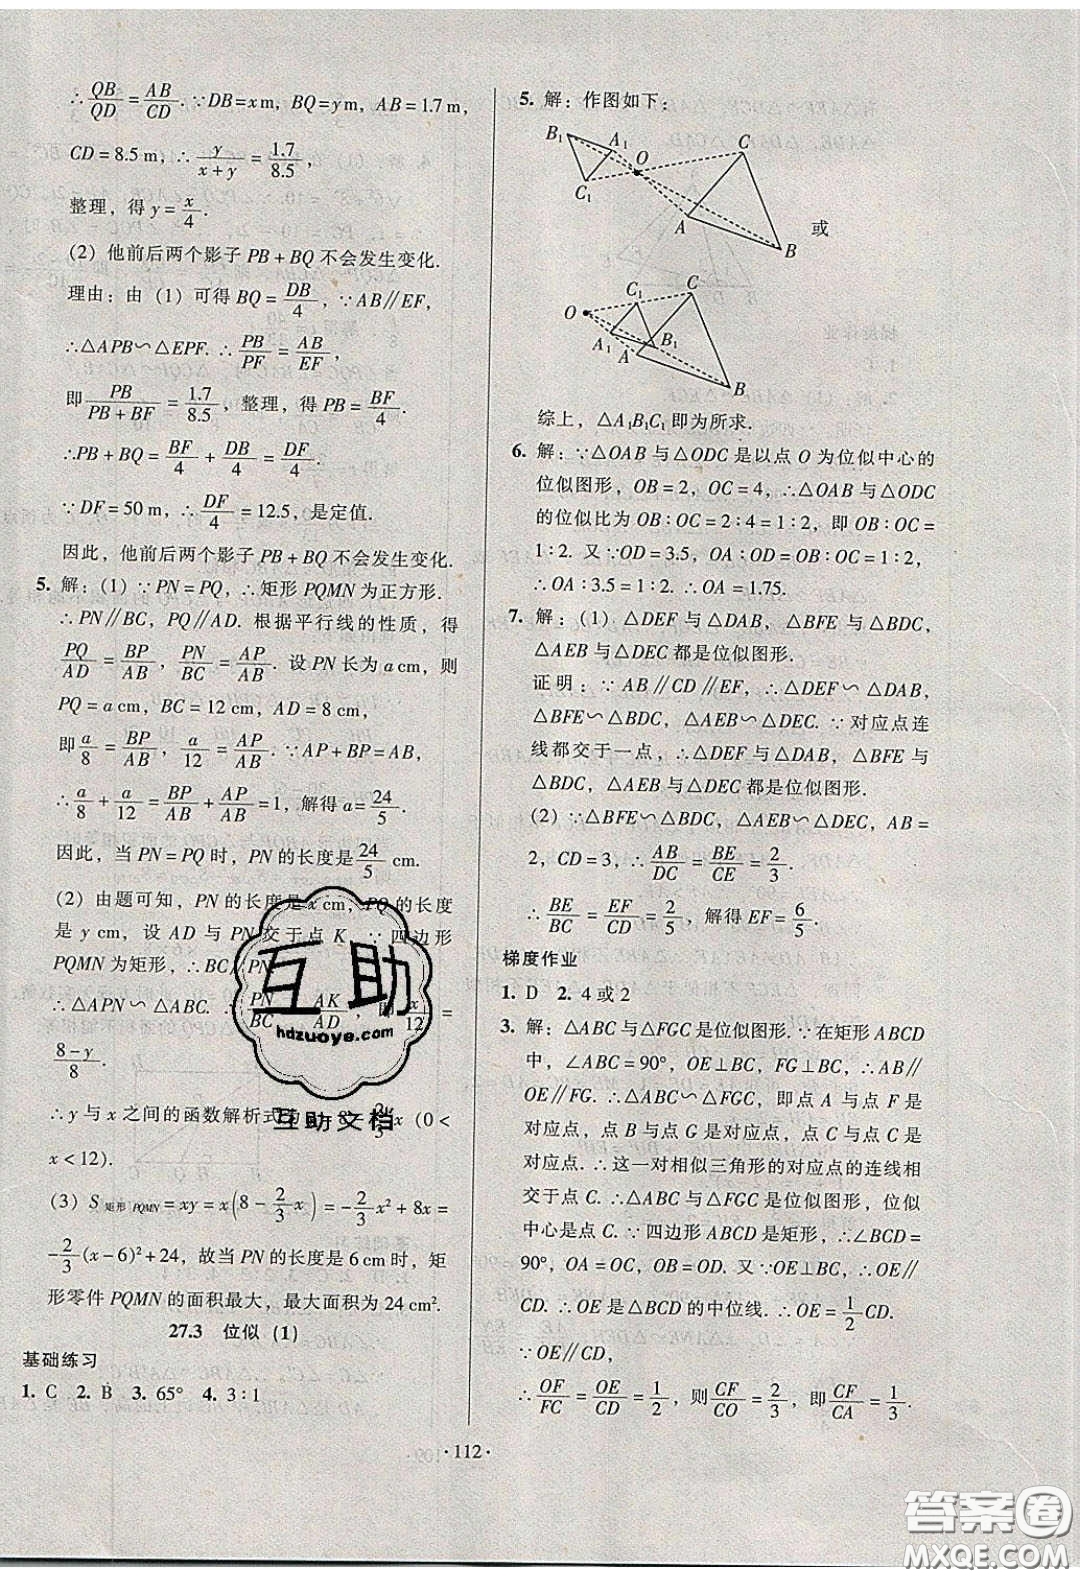 ∴ QB/QD = AB/CD. ∵DB=x m, BQ=y m, AB=1.7 m,
CD=8.5 m, ∴ y/(x+y) = 1.7/8.5,
整理，得 y=x/4.
(2) 他前后两个影子 PB+BQ 不会发生变化.
理由：由（1）可得 BQ=DB/4, ∵AB∥EF,
∴△APB∽△EPF. ∴ PB/PF = AB/EF,
即 PB/(PB+BF) = 1.7/8.5, 整理，得 PB=BF/4.
∴PB+BQ=BF/4+DB/4=DF/4.
∵DF=50 m, ∴ DF/4=12.5, 是定值.
因此，他前后两个影子 PB+BQ 不会发生变化.
5. 解：(1) ∵PN=PQ, ∴矩形 PQMN 为正方形.
∴PN∥BC, PQ∥AD. 根据平行线的性质，得
PQ/AD=BP/AB, PN/BC=AP/AB. 设 PN 长为 a cm, 则
PQ=a cm, BC=12 cm, AD=8 cm,
即 a/8=BP/AB, a/12=AP/AB. ∵AP+BP=AB,
∴ a/8+a/12=BP/AB+AP/AB=1, 解得 a=24/5.
因此，当 PN=PQ 时，PN 的长度是 24/5 cm.
(2) 由题可知，PN 的长度是 x cm, PQ 的长度
是 y cm, 设 AD 与 PN 交于点 K, ∵四边形
PQMN 为矩形，∴BC∥PN.
∴△APN∽△ABC. ∴ PN/BC = AK/AD, 即 x/12 =
(8-y)/8.
∴y 与 x 之间的函数解析式为 y=8-2/3 x (0<
x<12).
(3) S矩形PQMN=xy=x(8-2/3 x)=-2/3 x²+8x=
-2/3(x-6)²+24, 故当 PN 的长度是 6 cm 时，矩
形零件 PQMN 的面积最大，最大面积为 24 cm².
27.3 位似（1）
基础练习
1. C 2. B 3. 65° 4. 3∶1
5. 解：作图如下：
B1 A1 O C
C1 A B 或
O C1 C
A1 A B1 B
综上，△A1B1C1 即为所求.
6. 解：∵△OAB 与△ODC 是以点 O 为位似中心的
位似图形，OB=2, OC=4, ∴△OAB 与△ODC
的位似比为 OB∶OC=2∶4=1∶2, 即 OB∶OC=
1∶2. 又∵OD=3.5, OA∶OD=OB∶OC=1∶2,
∴OA∶3.5=1∶2. ∴OA=1.75.
7. 解：(1) △DEF 与△DAB, △BFE 与△BDC,
△AEB 与△DEC 都是位似图形.
证明：∵AB∥CD∥EF, ∴△DEF∽△DAB,
△BFE∽△BDC, △AEB∽△DEC. ∵对应点连
线都交于一点，∴△DEF 与△DAB, △BFE 与
△BDC, △AEB 与△DEC 都是位似图形.
(2) ∵△BFE∽△BDC, △AEB∽△DEC, AB=
2, CD=3, ∴ AB/DC=BE/CE=2/3.
∴ BE/BC=EF/CD=2/5, 解得 EF=6/5.
梯度作业
1. D 2. 4 或 2
3. 解：△ABC 与△FGC 是位似图形. ∵在矩形 ABCD
中，∠ABC=90°, OE⊥BC, FG⊥BC, ∴AB∥
OE∥FG. ∴△ABC∽△FGC, 即点 A 与点 F 是
对应点，点 B 与点 G 是对应点，点 C 与点 C 是
对应点. ∴这一对相似三角形的对应点的连线相
交于点 C. ∴△ABC 与△FGC 是位似图形，位似
中心是点 C. ∵四边形 ABCD 是矩形，∴∠BCD=
90°, OA=OC, OB=OD. 又∵OE⊥BC, ∴OE∥
CD. ∴OE 是△BCD 的中位线. ∴OE=1/2 CD.
∵OE∥CD,
∴ OF/FC=OE/CD=1/2, 则 CF/CO=2/3, 即 CF/CA=1/3.
·112·
互助
hdzuoye.com
互助文档
答案圈
MXQE.COM